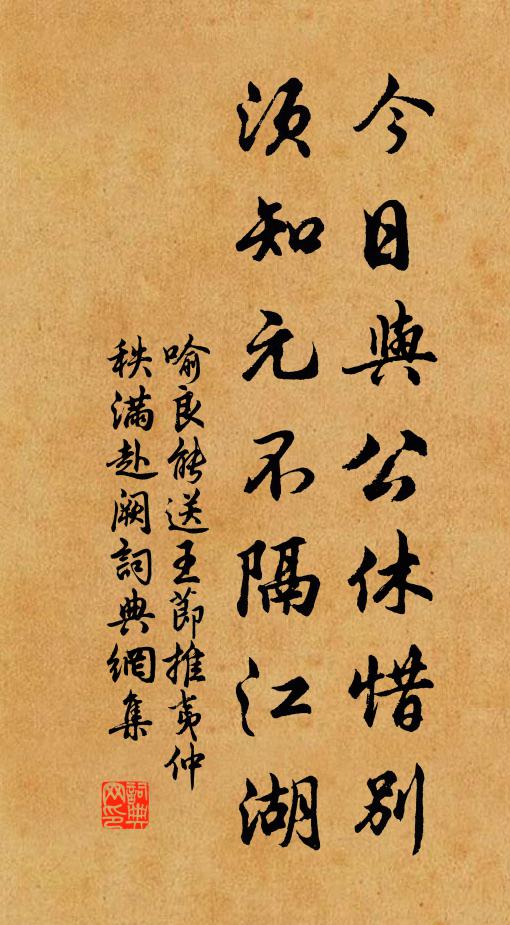 今日與公休惜別
須知元不隔江湖
喻良能送王節推夷仲
秩滿赴闕詞典網集
詞典网印